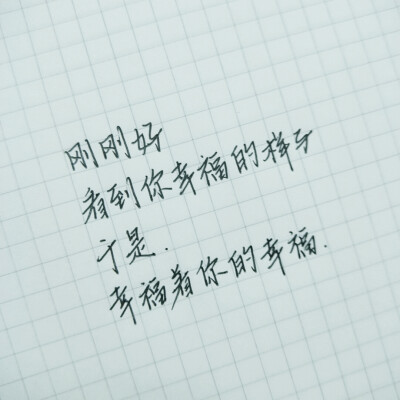 刚刚好
看到你幸福的样子
于是.
幸福着你的幸福.